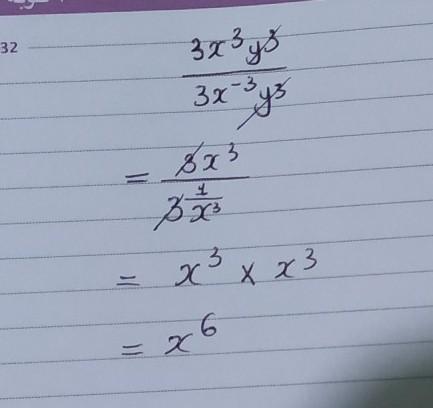 32
3x³y³
3x⁻³y³
= 3x³
3 1/x³
= x³ × x³
= x⁶